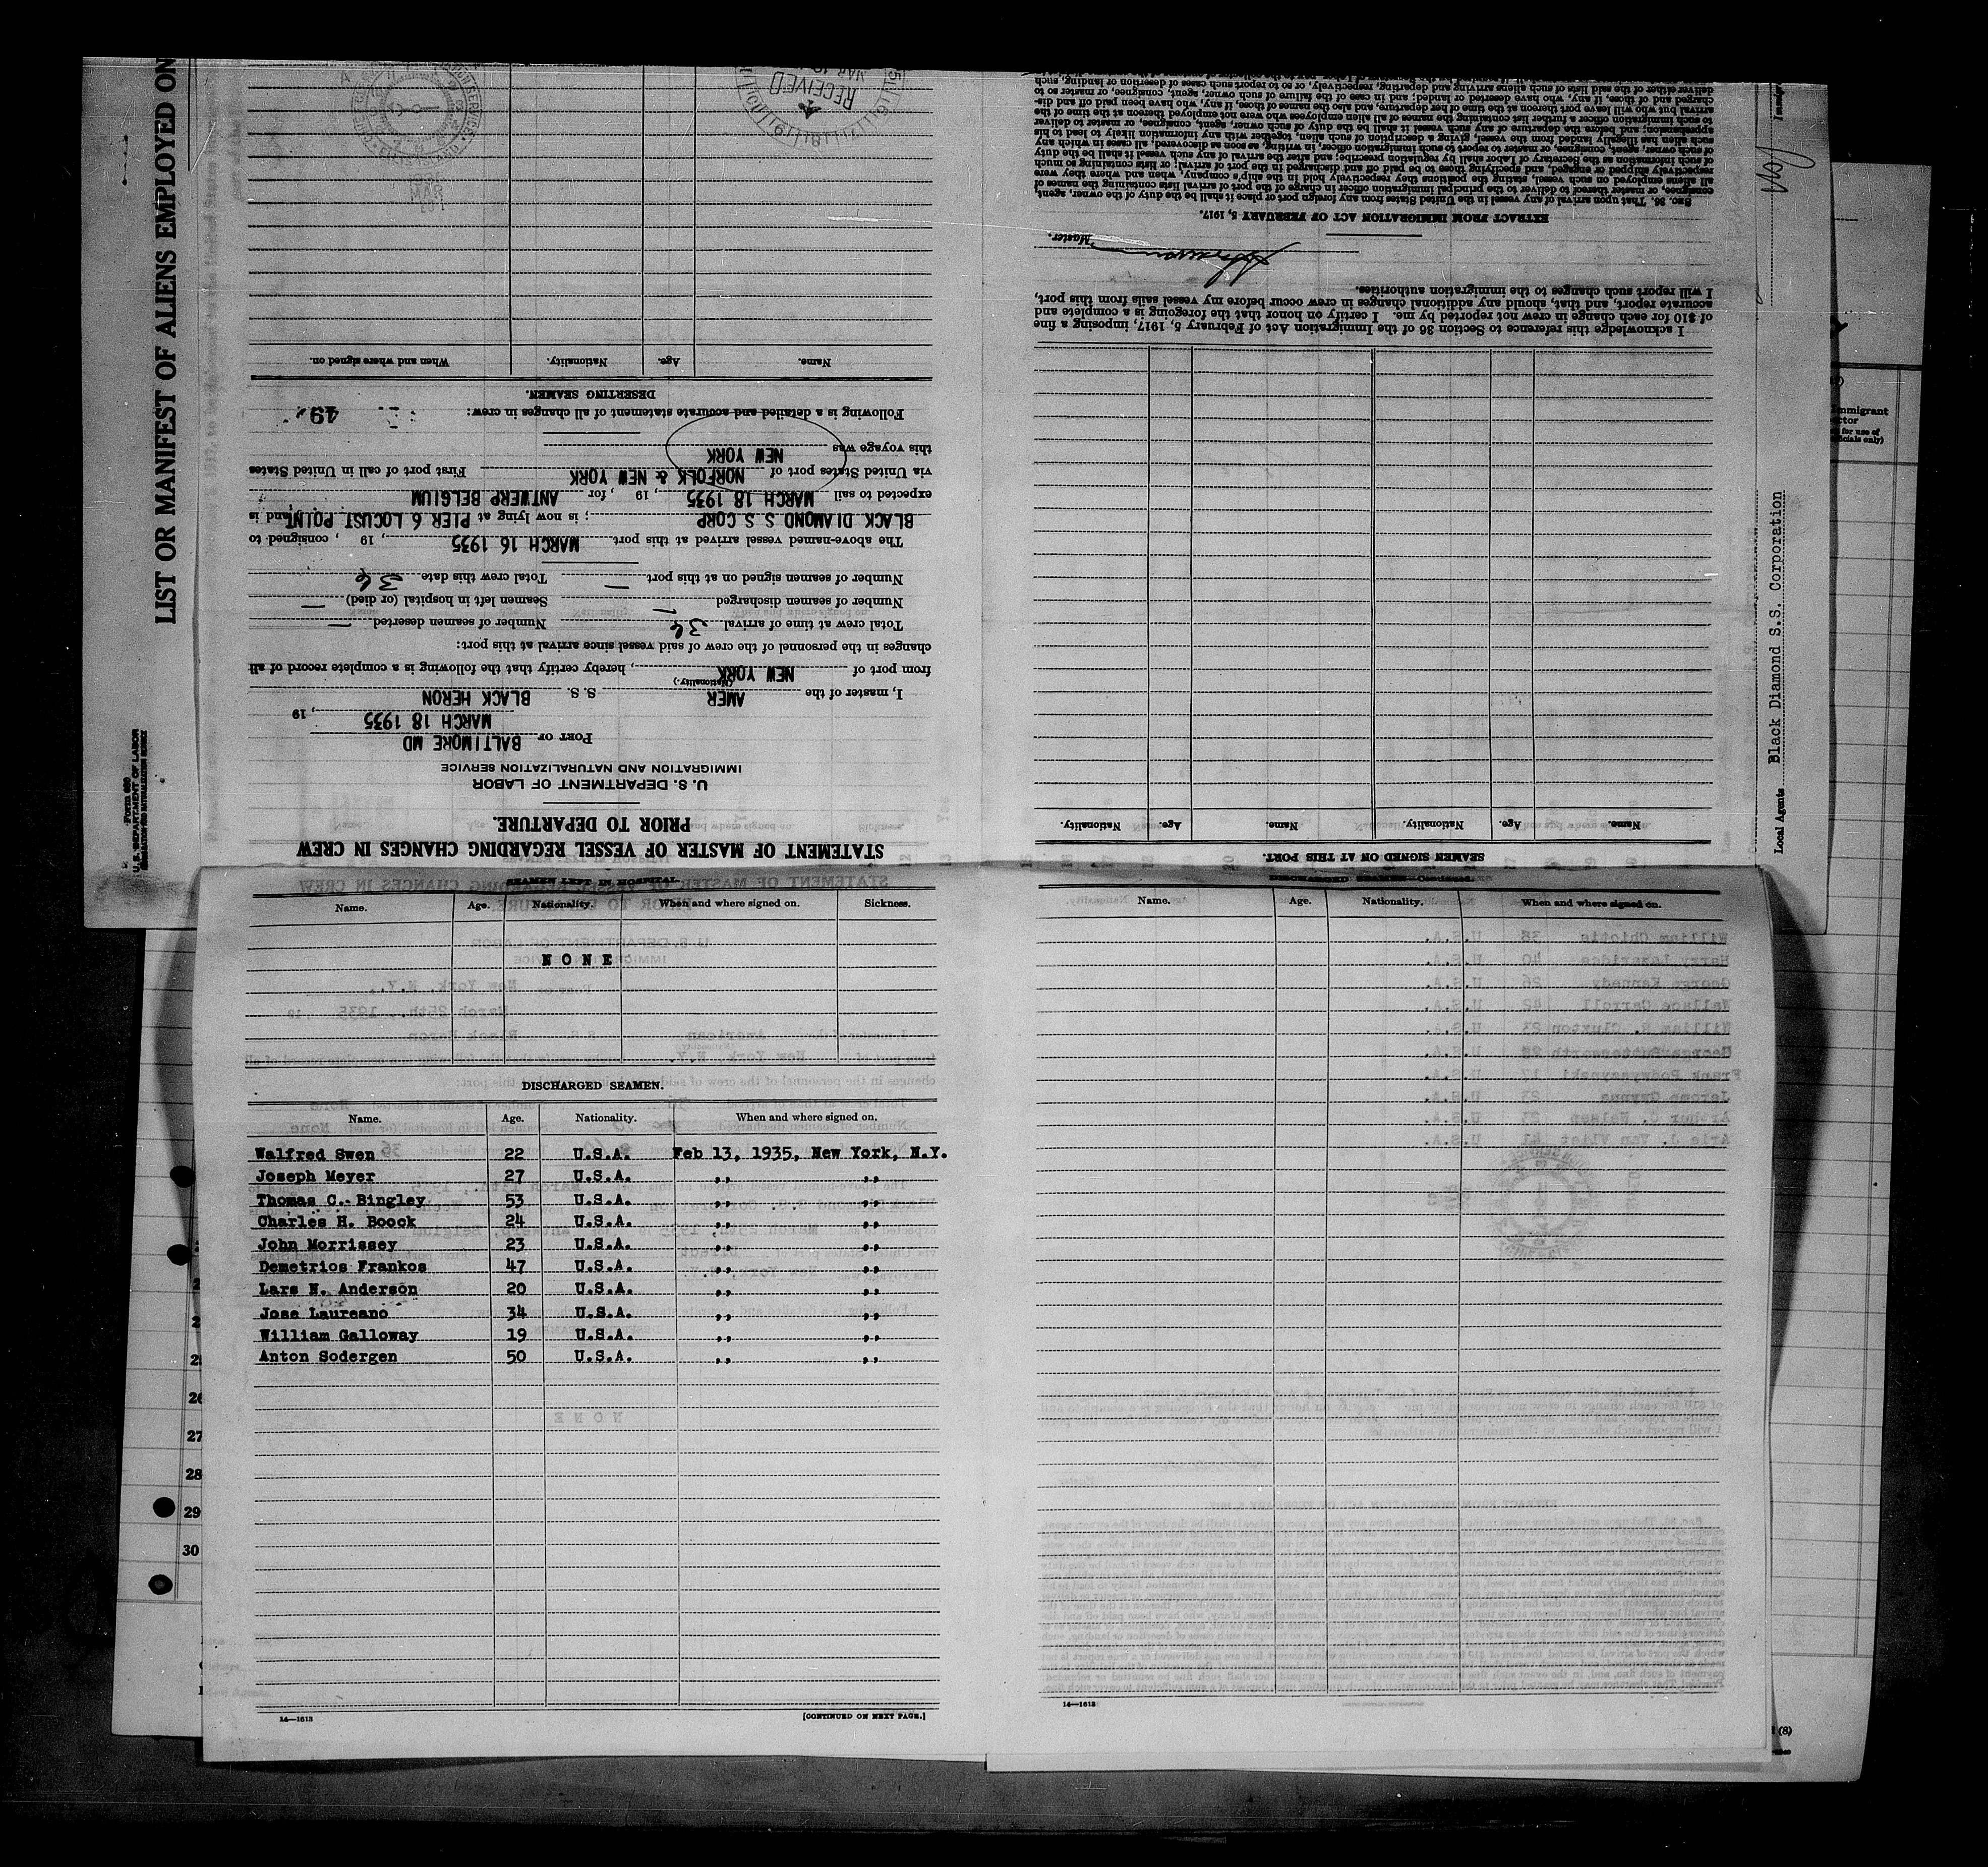 LIST OR MANIFEST OF ALIENS EMPLOYED ON
Form 680
U. S. DEPARTMENT OF LABOR
IMMIGRATION AND NATURALIZATION SERVICE
STATEMENT OF MASTER OF VESSEL REGARDING CHANGES IN CREW
PRIOR TO DEPARTURE.
U. S. DEPARTMENT OF LABOR
IMMIGRATION AND NATURALIZATION SERVICE
PORT OF BALTIMORE MD
MARCH 18 1935, 19
I, master of the AMER S. S. BLACK HERON
(Nationality.)
from port of NEW YORK, hereby certify that the following is a complete record of all
changes in the personnel of the crew of said vessel since arrival at this port:
Total crew at time of arrival 36 Number of seamen deserted —
Number of seamen discharged — Seamen left in hospital (or died) —
Number of seamen signed on at this port — Total crew this date 36
The above-named vessel arrived at this port MARCH 16 1935, 19 , consigned to
BLACK DIAMOND S S CORP ; is now lying at PIER 6 LOCUST POINT, and is
expected to sail MARCH 18 1935, 19 , for ANTWERP BELGIUM
via United States port of NORFOLK & NEW YORK First port of call in United States
this voyage was NEW YORK
Following is a detailed and accurate statement of all changes in crew: 49
DESERTING SEAMEN.
Name. Age. Nationality. When and where signed on.
RECEIVED
SEAMEN SIGNED ON AT THIS PORT.
Name. Age. Nationality. Name. Age. Nationality.
I acknowledge this reference to Section 36 of the Immigration Act of February 5, 1917, imposing a fine
of $10 for each change in crew not reported by me. I certify on honor that the foregoing is a complete and
accurate report, and that, should any additional changes in crew occur before my vessel sails from this port,
I will report such changes to the immigration authorities.
Master.
EXTRACT FROM IMMIGRATION ACT OF FEBRUARY 5, 1917.
SEC. 36. That upon arrival of any vessel in the United States from any foreign port or place it shall be the duty of the owner, agent,
consignee, or master thereof to deliver to the principal immigration officer in charge of the port of arrival lists containing the names of
all aliens employed on such vessel, stating the positions they respectively hold in the ship's company, when and where they were
respectively shipped or engaged, and specifying those to be paid off and discharged in the port of arrival; or lists containing so much
of such information as the Secretary of Labor shall by regulation prescribe; and after the arrival of any such vessel it shall be the duty
of such owner, agent, consignee, or master to report to such immigration officer, in writing, as soon as discovered, all cases in which any
such alien has illegally landed from the vessel, giving a description of such alien, together with any information likely to lead to his
apprehension; and before the departure of any such vessel it shall be the duty of such owner, agent, consignee, or master to deliver
to such immigration officer a further list containing the names of all alien employees who were not employed thereon at the time of the
arrival but who will leave port thereon at the time of her departure, and also the names of those, if any, who have been paid off and dis-
charged and of those, if any, who have deserted or landed; and in case of the failure of such owner, agent, consignee, or master so to
deliver either of the said lists of such aliens arriving and departing, respectively, or so to report such cases of desertion or landing, such
Local Agents Black Diamond S.S. Corporation
SEAMEN LEFT IN HOSPITAL
Name. Age. Nationality. When and where signed on. Sickness.
NONE
DISCHARGED SEAMEN.
Name. Age. Nationality. When and where signed on.
Walfred Swen 22 U.S.A. Feb 13, 1935, New York, N.Y.
Joseph Meyer 27 U.S.A. ,, ,,
Thomas C. Bingley 53 U.S.A. ,, ,,
Charles H. Boock 24 U.S.A. ,, ,,
John Morrissey 23 U.S.A. ,, ,,
Demetrios Frankos 47 U.S.A. ,, ,,
Lars N. Anderson 20 U.S.A. ,, ,,
Jose Laureano 34 U.S.A. ,, ,,
William Galloway 19 U.S.A. ,, ,,
Anton Sodergen 50 U.S.A. ,, ,,
14—1613
[CONTINUED ON NEXT PAGE.]
DISCHARGED SEAMEN—Continued.
Name. Age. Nationality. When and where signed on.
14—1613
26
27
28
29
30
(8)